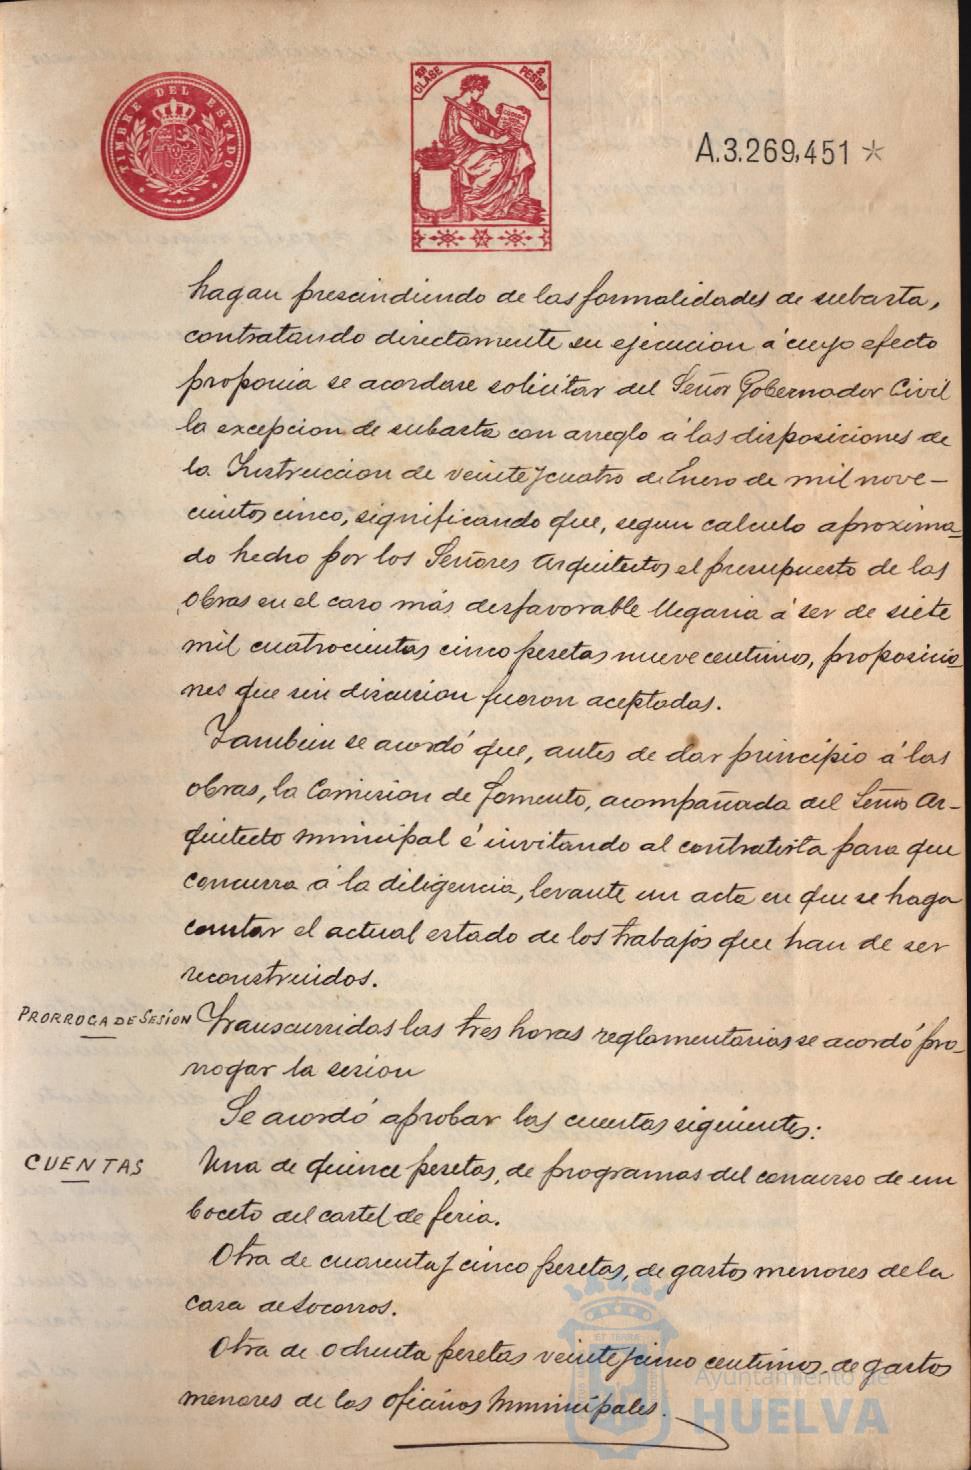 TIMBRE DEL ESTADO
10ª CLASE
2 PESTAS
A.3.269,451 *
hagan prescindiendo de las formalidades de subasta,
contratando directamente su ejecucion á cuyo efecto
proponia se acordase solicitar del Señor Gobernador Civil
la excepcion de subasta con arreglo á las disposiciones de
la Instruccion de veinte y cuatro de Enero de mil nove-
cientos cinco, significando que, segun calculo aproxima-
do hecho por los Señores Arquitectos el presupuesto de las
obras en el caso más desfavorable llegaria á ser de siete
mil cuatrocientas cinco pesetas nueve centimos, proposicio-
nes que sin discusion fueron aceptadas.
Tambien se acordó que, antes de dar principio á las
obras, la Comision de Fomento, acompañada del Señor Ar-
quitecto municipal é invitando al contratista para que
concurra á la diligencia, levante un acta en que se haga
constar el actual estado de los trabajos que han de ser
reconstruidos.
PRORROGA DE SESIÓN Transcurridas las tres horas reglamentarias se acordó pro-
rrogar la sesion
Se acordó aprobar las cuentas siguientes:
CUENTAS Una de quince pesetas, de programas del concurso de un
boceto del cartel de feria.
Otra de cuarenta y cinco pesetas, de gastos menores de la
casa de Socorros.
Otra de ochenta pesetas veinte y cinco centimos, de gastos
menores de las oficinas Municipales.
Ayuntamiento de
HUELVA